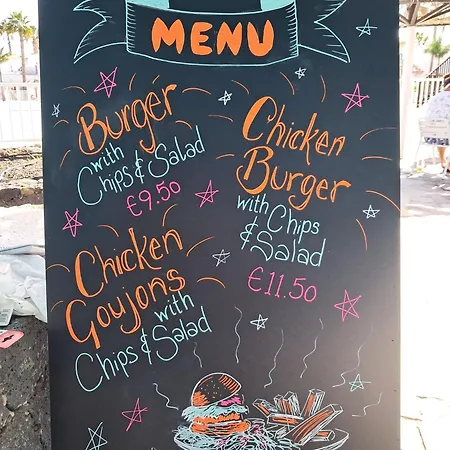 MENU
Burger
with
Chips & Salad
€9.50
Chicken
Burger
with Chips
& Salad
€11.50
Chicken
Goujons
with
Chips & Salad